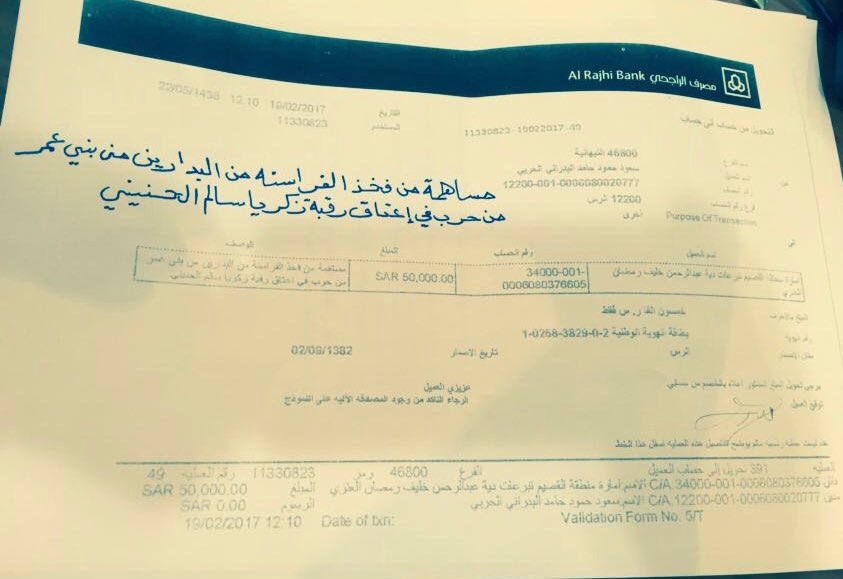 مصرف الراجحي Al Rajhi Bank
للتحويل من حساب الى حساب
التاريخ 19/02/2017 12.10 22/05/1438
المستخدم 11330823
11330823-19022017-49
من
اسم الفرع 46800 النبهانية
اسم العميل سعود حمود حامد البدراني الحربي
رقم الحساب 12200-001-0006080020777
فرع رقم الحساب 12200 الرس
Purpose Of Transaction أخرى
مساهمة من فخذ الفراسنه من البدارين من بني عمر
من حرب في إعتاق رقبة زكريا سالم الحسنيني
الى
اسم العميل رقم الحساب المبلغ الوصف
امارة منطقة القصيم تبرعات دية عبدالرحمن خليف رمضان العنزي
34000-001-0006080376605
SAR 50,000.00
مساهمة من فخذ الفراسنة من البدارين من بني عمر من حرب في اعتاق رقبة زكريا سالم
المبلغ بالاحرف خمسون الفا ر. س فقط
رقم الهوية بطاقة الهوية الوطنية 2-0-3829-0268-1
مكان الاصدار الرس تاريخ الاصدار 02/09/1382
يرجى تحويل المبلغ المذكور اعلاه بالخصوص حسابي
عزيزي العميل
توقيع العميل
الرجاء التاكد من وجود المصادقه الاليه على النموذج
العمليه 391 تحويل إلى حساب العميل الفرع 46800 رمز 11330823 رقم العمليه 49
دائن C/A.34000-001-0006080376605 الاسم امارة منطقة القصيم تبرعات دية عبدالرحمن خليف رمضان العنزي المبلغ SAR 50,000.00
مدين C/A.12200-001-0006080020777 الاسم سعود حمود حامد البدراني الحربي الرسوم SAR 0.00
Validation Form No. 5/T Date of txn: 19/02/2017 12:10